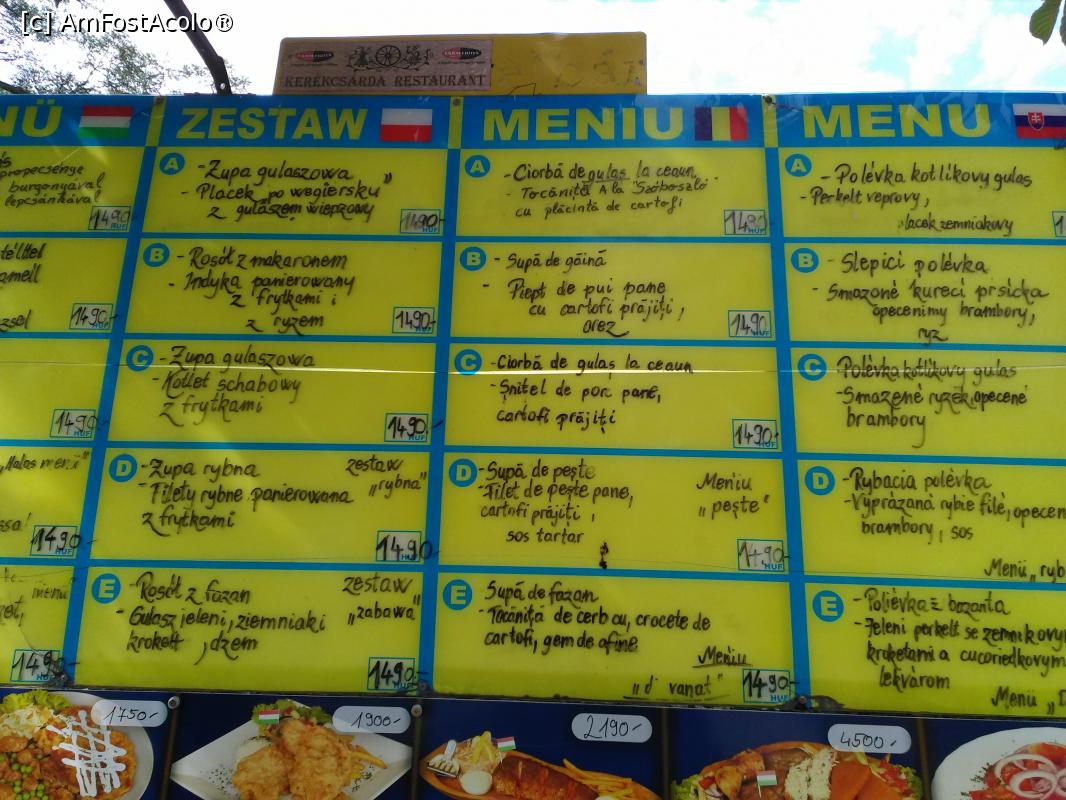 [c] AmFostAcolo®
KEREKCSÁRDA RESTAURANT
NÜ
burgonyával
lepcsánkával
1490
1490
1490
1490
1490
ZESTAW
A
- Zupa gulaszowa
- Placek „po węgiersku”
z gulaszem wieprzowy
1490-
HUF
B
- Rosół z makaronem
- Indyka panierowany
z frytkami i
z ryżem
1490-
HUF
C
- Zupa gulaszowa
- Kotlet schabowy
z frytkami
1490-
HUF
D
- Zupa rybna
- Filety rybne panierowana
z frytkami
zestaw
„rybna”
1490-
HUF
E
- Rosół z fazan
- Gulasz jeleni, ziemniaki
krokett, dżem
zestaw
„zabawa”
1490-
HUF
MENIU
A
- Ciorbă de gulaș la ceaun
- Tocăniță A la "Szöbosaló"
cu plăcintă de cartofi
1490-
HUF
B
- Supă de găină
- Piept de pui pane
cu cartofi prăjiți,
orez
1490-
HUF
C
- Ciorbă de gulaș la ceaun
- Șnitel de porc pane,
cartofi prăjiți
1490-
HUF
D
- Supă de pește
- Filet de pește pane,
cartofi prăjiti,
sos tartar
Meniu
„pește”
1490-
HUF
E
- Supă de fazan
- Tocăniță de cerb cu, crocete de
cartofi, gem de afine
Meniu
„d' vanat”
1490-
HUF
MENU
A
- Polévka kotlíkovy gulas
- Perkelt veprovy,
placek zemniakovy
B
- Slepici polévka
- Smazoné kureci prsicka
opecenimy brambory,
ryz
C
- Polévka kotlíkovy gulas
- Smazené ryzek, opecené
brambory
D
- Rybacia polévka
- Vyprázaná rybie filé, opecen
brambory, sos
Menü „ryb
E
- Polievka z bazanta
- Jeleni perkelt se zemnikovym
kroketami a cucoriedkovým
lekvárom
Menü „D
1750-
1900-
2190-
4500-